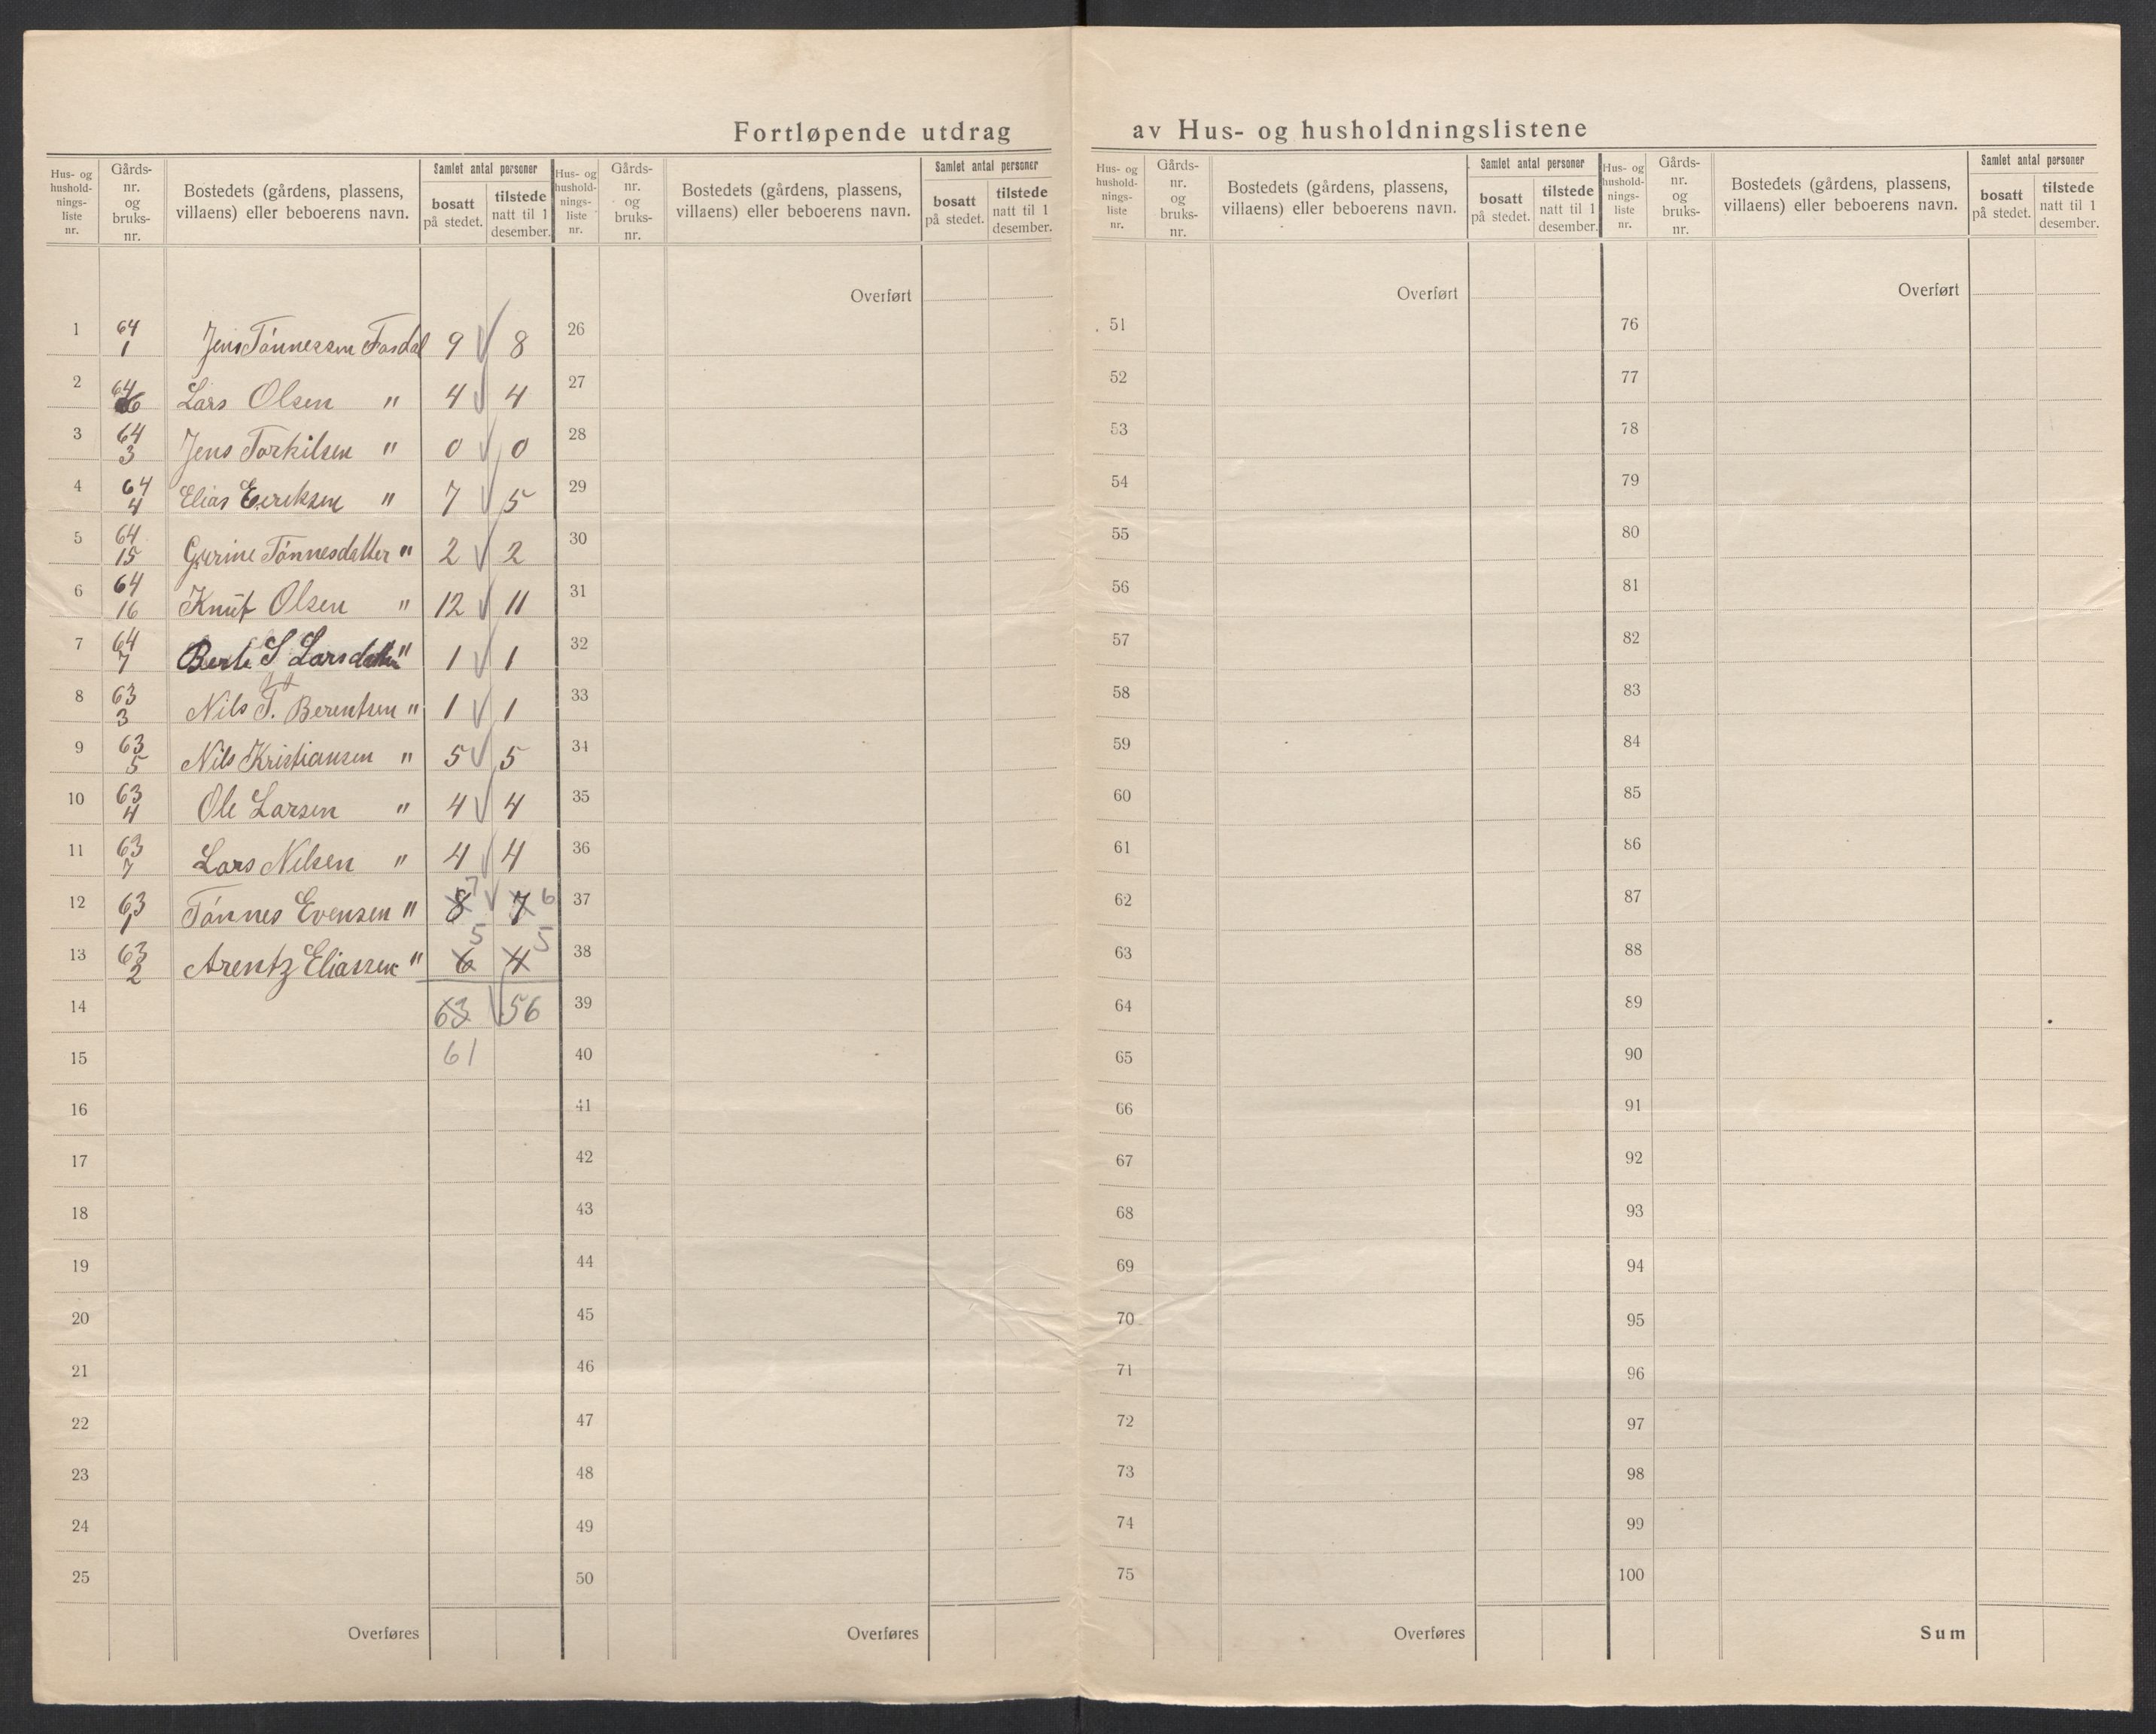 Fortløpende utdrag av Hus- og husholdningslistene
Hus- og hushold-nings-liste nr. Gårds-nr. og bruks-nr. Bostedets (gårdens, plassens, villaens) eller beboerens navn. Samlet antal personer bosatt på stedet. tilstede natt til 1 desember.
Hus- og hushold-nings-liste nr. Gårds-nr. og bruks-nr. Bostedets (gårdens, plassens, villaens) eller beboerens navn. Samlet antal personer bosatt på stedet. tilstede natt til 1 desember.
Hus- og hushold-nings-liste nr. Gårds-nr. og bruks-nr. Bostedets (gårdens, plassens, villaens) eller beboerens navn. Samlet antal personer bosatt på stedet. tilstede natt til 1 desember.
Hus- og hushold-nings-liste nr. Gårds-nr. og bruks-nr. Bostedets (gårdens, plassens, villaens) eller beboerens navn. Samlet antal personer bosatt på stedet. tilstede natt til 1 desember.
Overført Overført Overført
1 64/1 Jens Tønnessen Fasdal 9 8 26 51 76
2 64/6 Lars Olsen " 4 4 27 52 77
3 64/3 Jens Torkilsen " 0 0 28 53 78
4 64/4 Elias Eeriksen " 7 5 29 54 79
5 64/15 Gurine Tønnesdatter " 2 2 30 55 80
6 64/16 Knut Olsen " 12 11 31 56 81
7 64/7 Berte S Larsdatter " 1 1 32 57 82
8 63/3 Nils T. Berentsen " 1 1 33 58 83
9 63/5 Nils Kristiansen " 5 5 34 59 84
10 63/4 Ole Larsen " 4 4 35 60 85
11 63/7 Lars Nilsen " 4 4 36 61 86
12 63/1 Tønnes Evensen " 8 7 7 6 37 62 87
13 63/2 Arentz Eliassen " 6 5 4 5 38 63 88
14 63 56 39 64 89
15 61 40 65 90
16 41 66 91
17 42 67 92
18 43 68 93
19 44 69 94
20 45 70 95
21 46 71 96
22 47 72 97
23 48 73 98
24 49 74 99
25 50 75 100
Overføres Overføres Overføres Sum